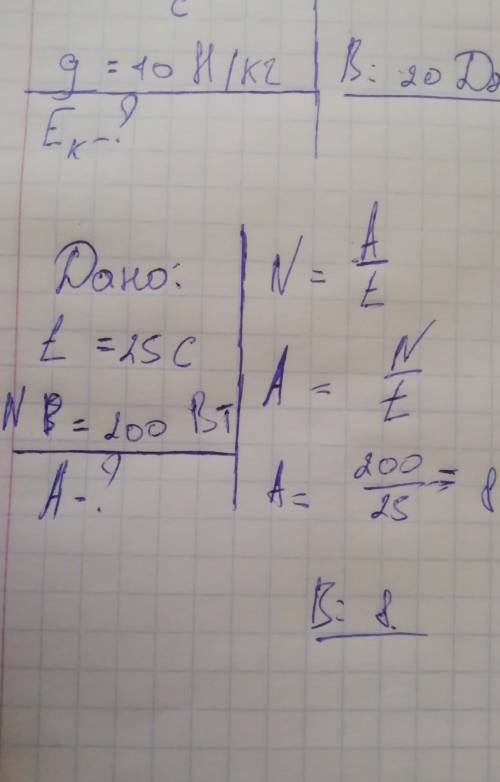 с
g = 10 Н/кг
В: 20 Дж
Eк - ?
Дано:
t = 25 с
N = 200 Вт
A - ?
N = A/t
A = N/t
A = 200/25 = 8
В: 8.